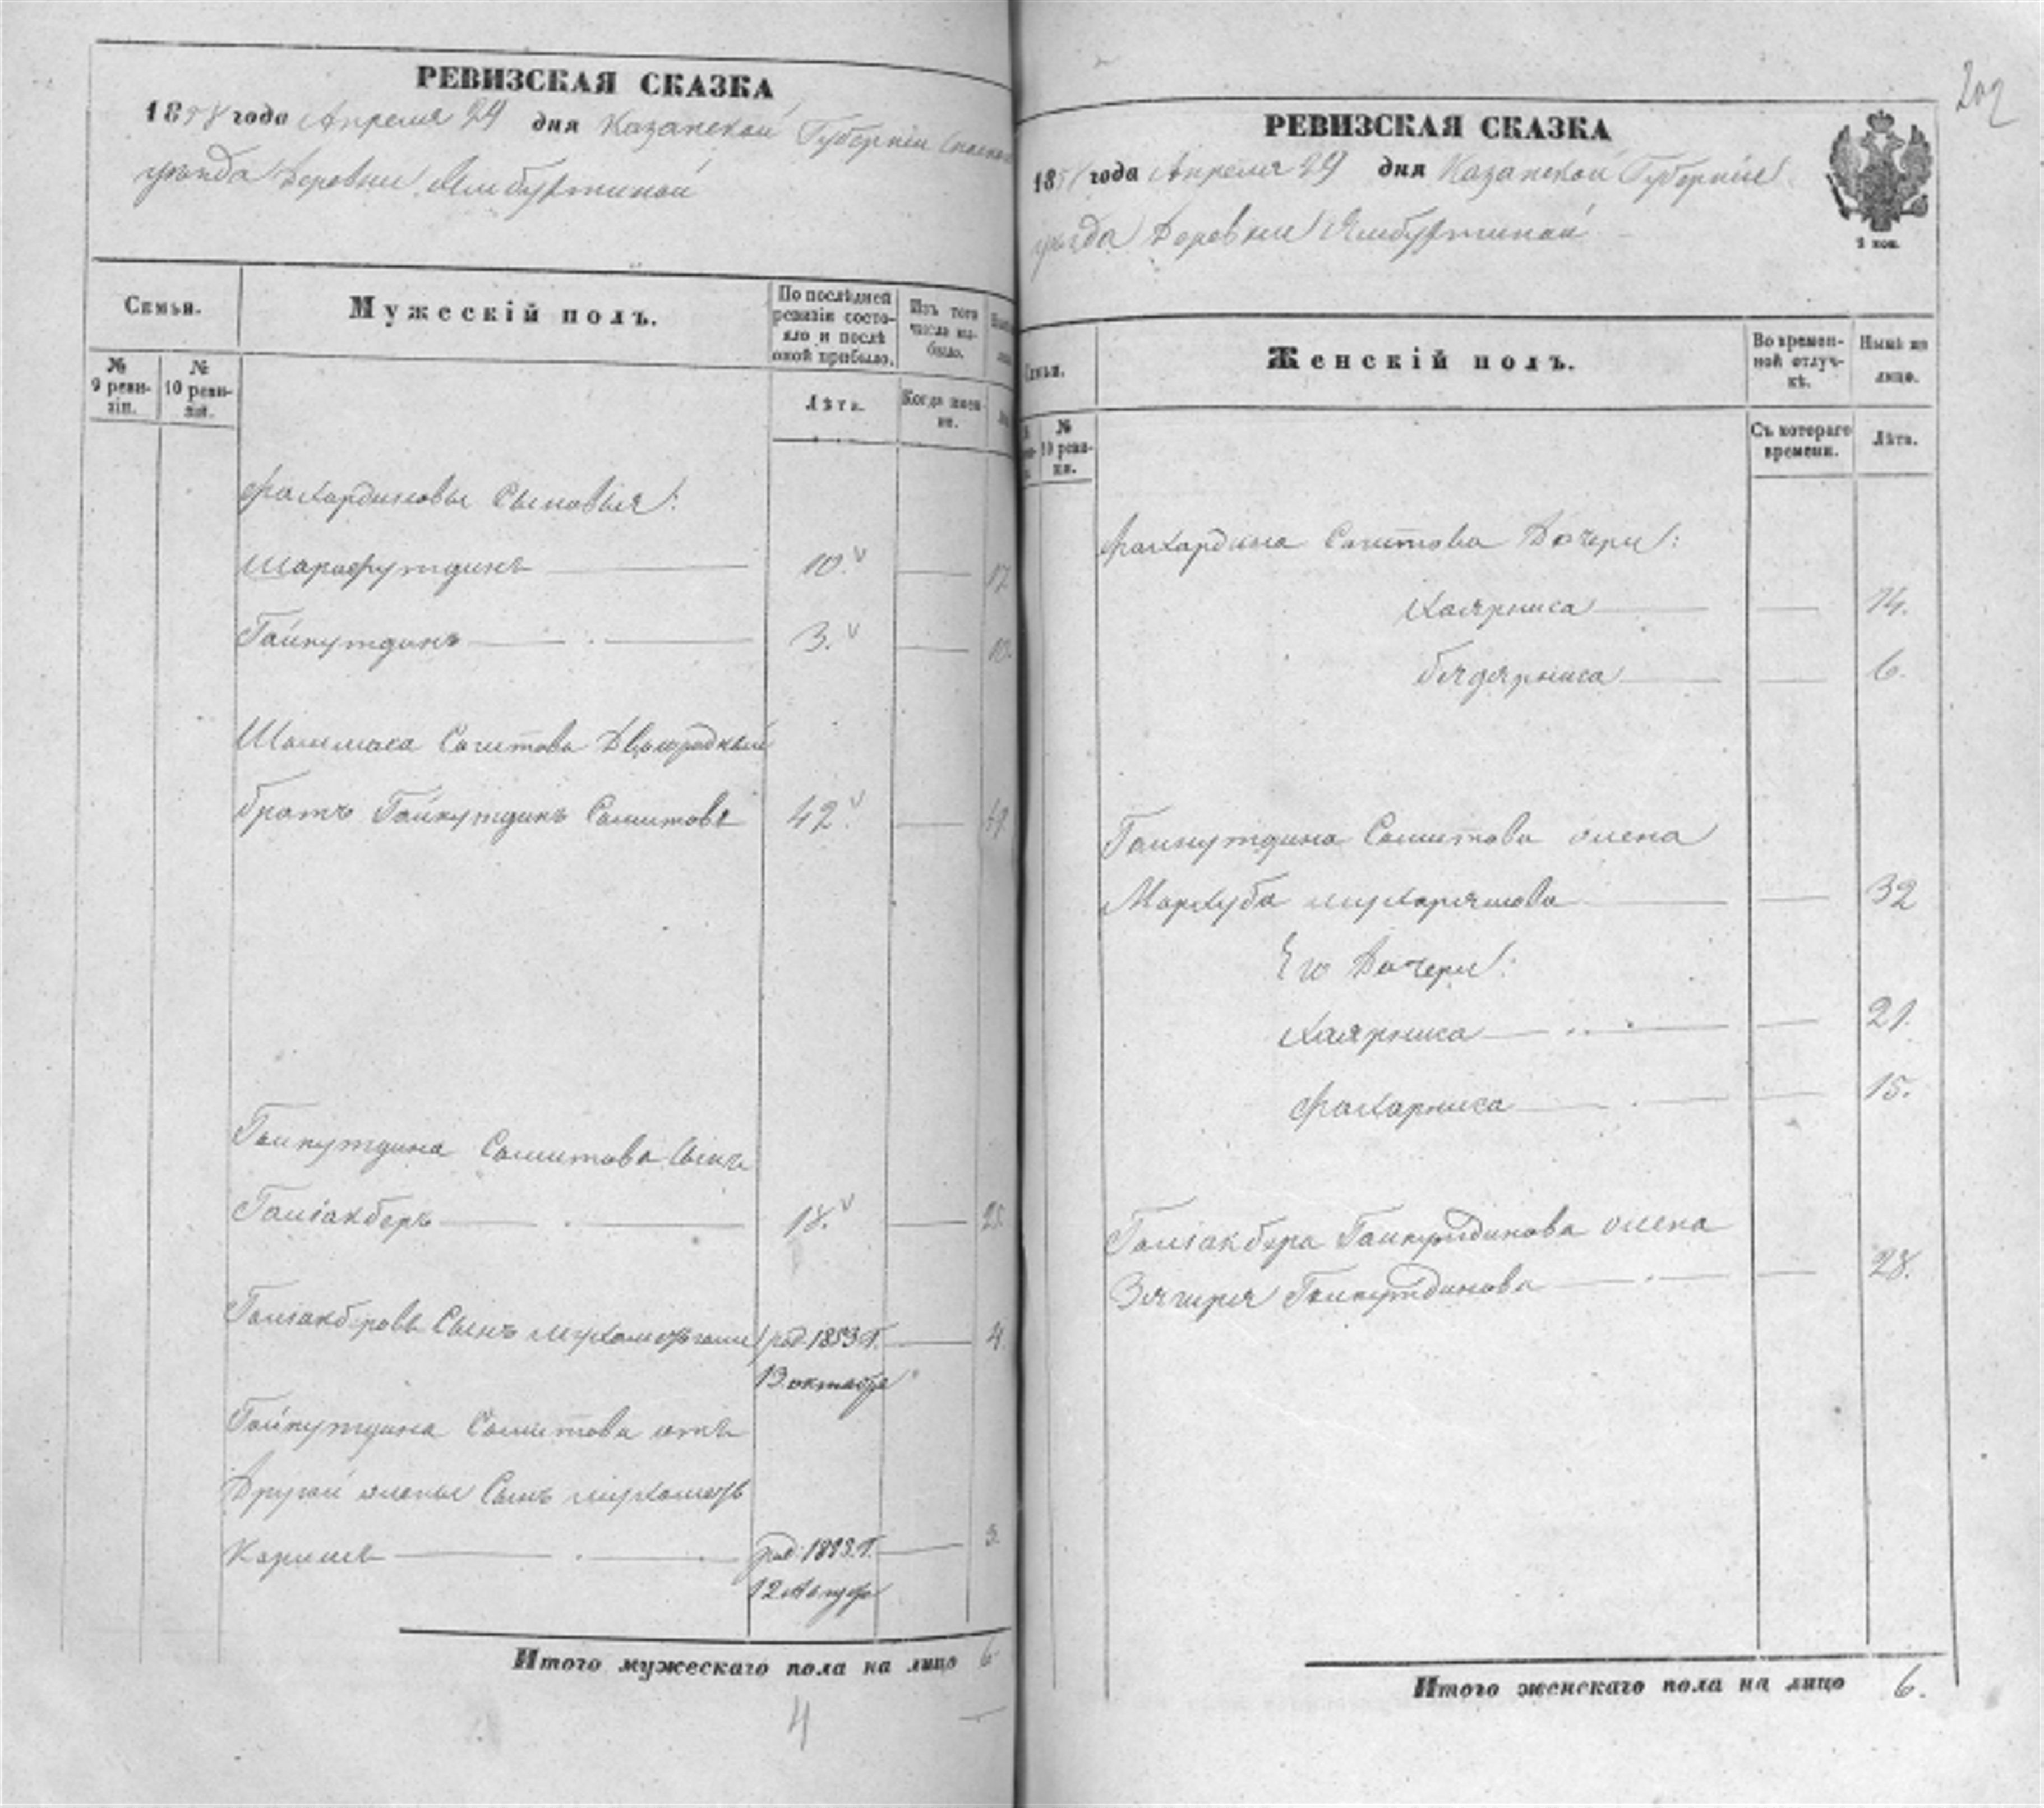 РЕВИЗСКАЯ СКАЗКА
1858 года Апреля 29 дня Казанской Губернии Спаскаго
уезда Деревни Ямбухтиной
Семьи.
Мужескій полъ.
По послѣдней ревизіи состояло и послѣ оной прибыло.
Изъ того числа выбыло.
№ 9 ревизіи.
№ 10 ревизіи.
Лѣта.
Когда именно.
Фахардиновы Сыновья:
Шарафутдинъ 10. 17
Гайнутдинъ 3. 10.
Сагитова Двоюродный
братъ Гайнутдинъ Сашитовъ 42. 49
Гайнутдина Сашитова Сынъ
Галіакберъ 18. 25
Галіакберовъ Сынъ род. 1853 г. 4.
13 октября
Гайнутдина Сашитова отъ
Другой жены Сынъ Мухаметъ
Каримъ род. 1853 г.
12 Августа
Итого мужескаго пола на лицо 6
4
202
РЕВИЗСКАЯ СКАЗКА
1858 года Апреля 29 дня Казанской Губерніи
уезда Деревни Ямбухтиной
2 коп.
Семьи.
Женскій полъ.
Во временной отлучкѣ.
Нынѣ на лицо.
№ 10 ревизіи.
Съ котораго времени.
Лѣта.
Фахардина Сагитова Дочери:
Хаярниса 14.
Бядярниса 6.
Гайнутдина Сашитова жена
Маркуба 32
Его Дочери:
Хаярниса 21.
Фахарниса 15.
Галіакбера Гайнутдинова жена
Зягиря Гайнутдинова 28.
Итого женскаго пола на лицо 6.